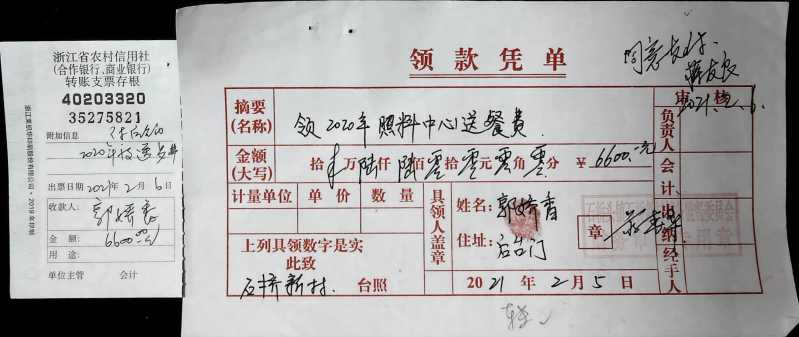 浙江省农村信用社
(合作银行、商业银行)
转账支票存根
40203320
35275821
附加信息
出票日期 2021年 2月 6日
收款人:
郭娇香
金 额:
6600.00元
用 途:
单位主管 会计
领款凭单
同意支付
2021.2.6.
摘要
(名称)
领2020年照料中心送餐费.
审 核
负责人
会计
出纳
经手人
金额
(大写)
拾 万 陆 仟 陆 佰 零 拾 零 元 零 角 零 分 ¥ 6600.-元
计量单位 单 价 数 量
具领人盖章
姓名: 郭娇香
住址: 后台门
章
上列具领数字是实
此致
石桥新村. 台照
2021 年 2 月 5 日